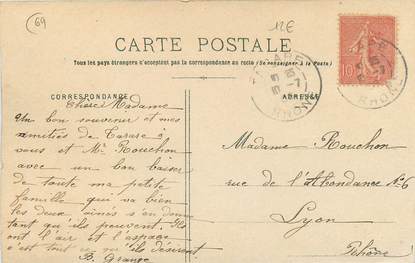 69
12E
CARTE POSTALE
Tous les pays étrangers n'acceptent pas la correspondance au recto (Se renseigner à la Poste)
CORRESPONDANCE
ADRESSE
TARARE
RHONE
10
Chère Madame
Un bon souvenir et mes
amitiés de Tarare à
vous et Mr Rouchon
avec un bon baiser
de toute ma petite
famille qui va bien
les deux aînés s'en donne
tant qu'ils peuvent. Ils
ont l'air et l'espace
c'est tout ce qu'ils désirent
B. Grange
Madame Rouchon
rue de l'Abondance No 6
Lyon
Rhône